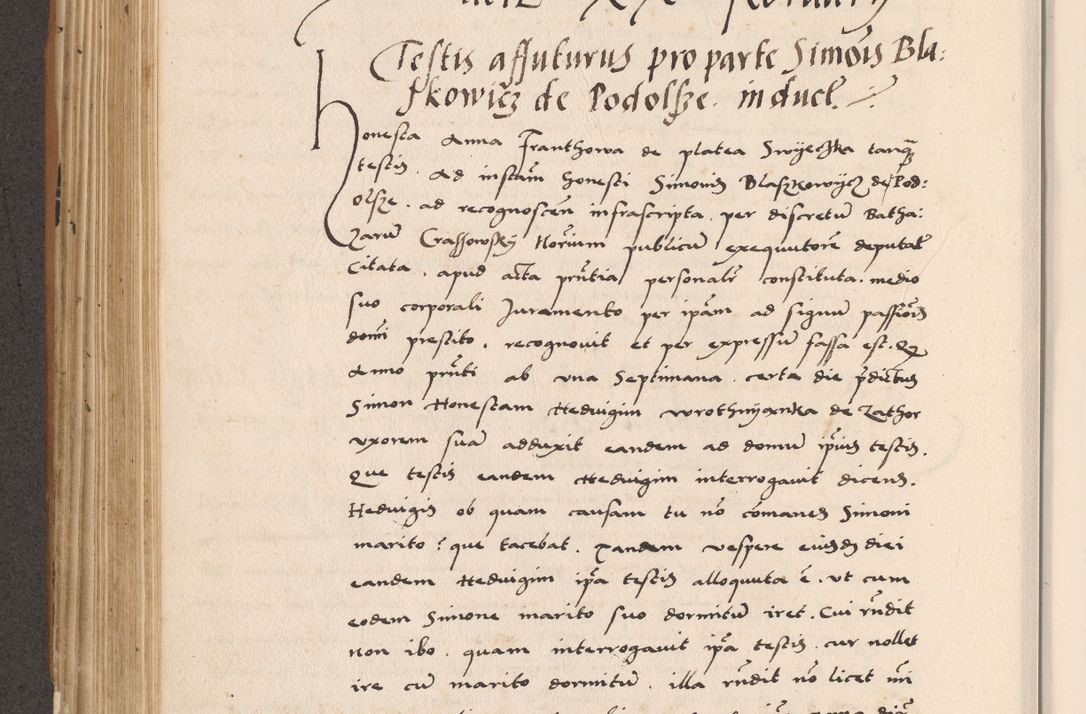 Testis assuturus pro parte Simōis Bla:
skowicz de Podolsze inducť.
Honesta Anna Franthowa de platea Swyeczka tanq̄
testis. Ad instam̄ honesti Simonis Blaszkowycz de Pod:
olsze. ad recognoscen̄ infrascripta per discretū Batha:
zarū Crassowsky Nor̄ium publicū exequutorē deputať
Citata. apud acta prn̄tia personalr̄ constituta. medio
suo corporali Juramento per ipām ad signū passiōis
domī prestito. recognovit et per expressū fassa est. Q̄
Anno prn̄ti ab una Septimana. certa die p̄dictus
Simon Honestam Hedvigim de Zathor
uxorem suā adduxit eandem ad domū ipīus testis.
Que testis eandem Hedvigim interrogavit dicens.
Hedvigis ob quam causam tu nō cōmanes Simoni
marito? que tacebat. Tandem vespere eiusd diei
eandem Hedvigim ipā testis alloquuta ē. ut cum
eodem Simone marito suo dormitū iret. Cui rn̄dit
non ibo. quam interrogavit ipā testis. cur nollet
ire cū marito dormitū. illa rn̄dit nō licet mī